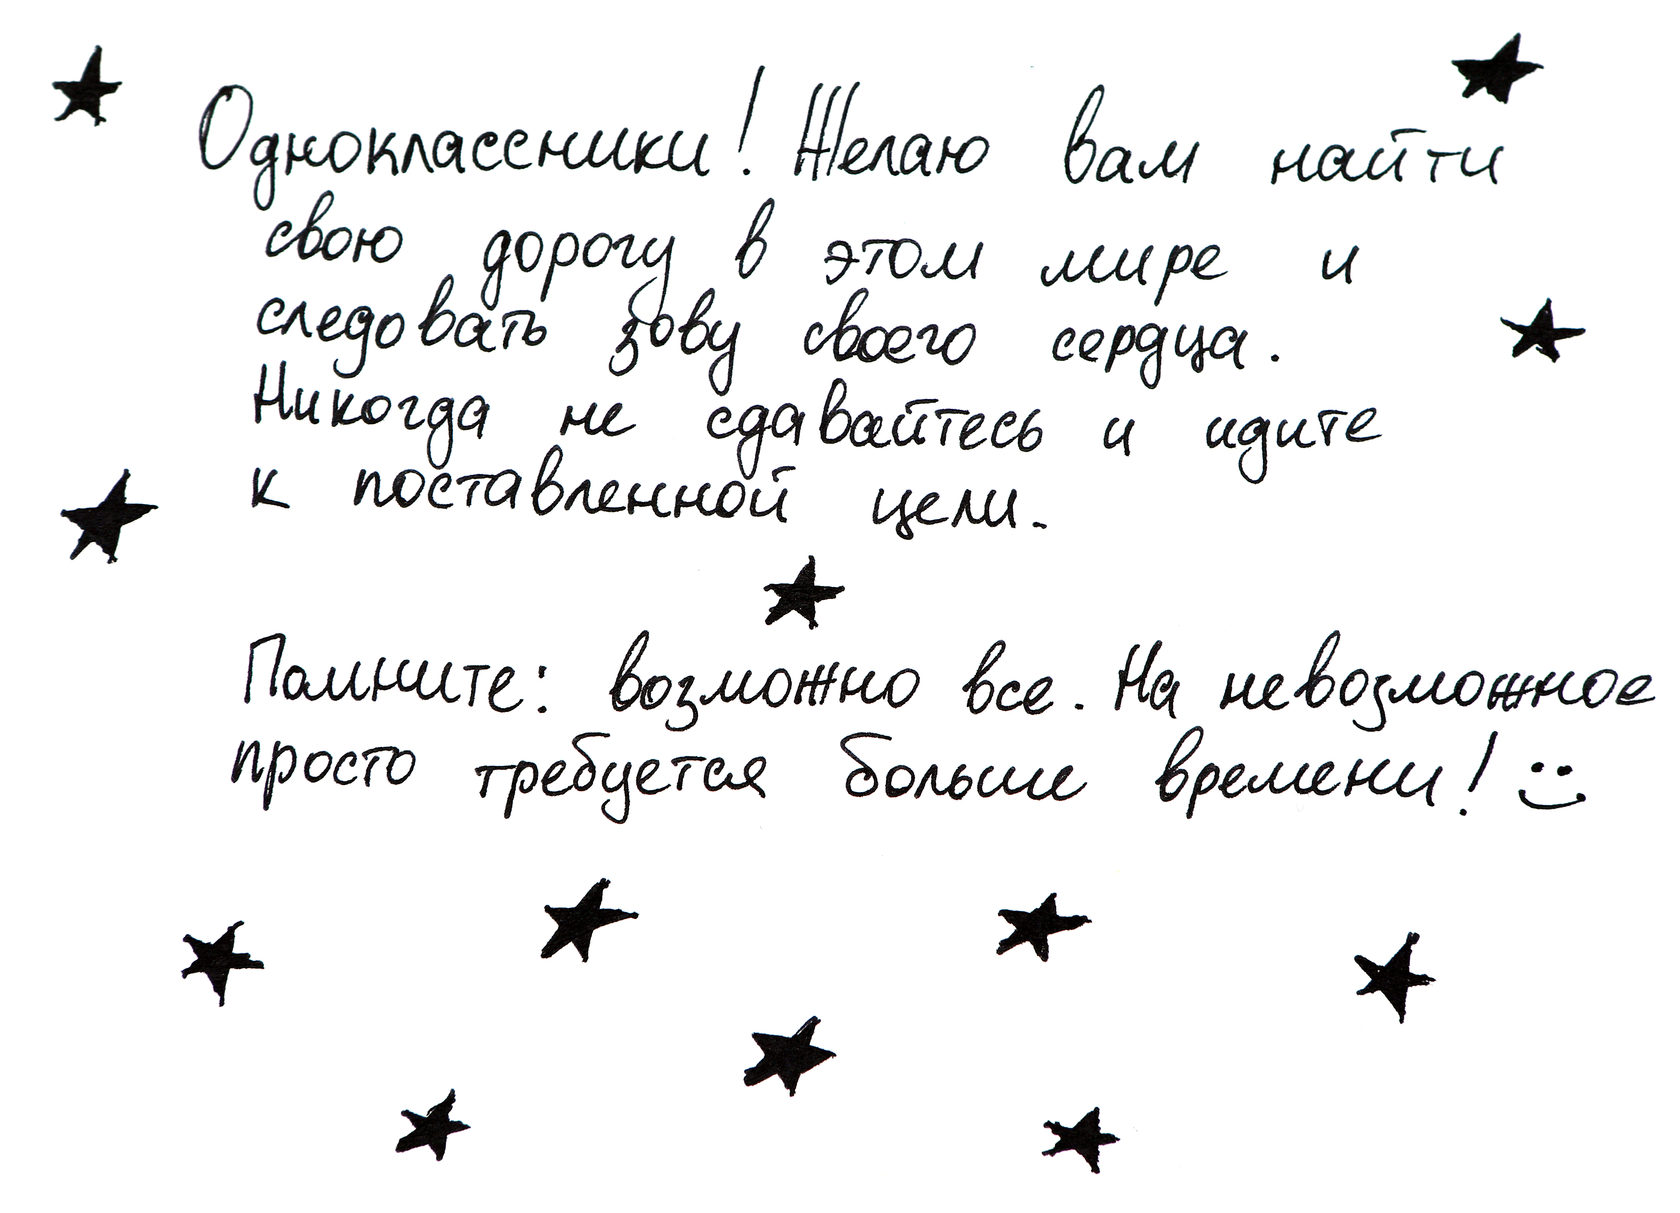 Одноклассники! Желаю вам найти
свою дорогу в этом мире и
следовать зову своего сердца.
Никогда не сдавайтесь и идите
к поставленной цели.
Помните: возможно все. На невозможное
просто требуется больше времени!